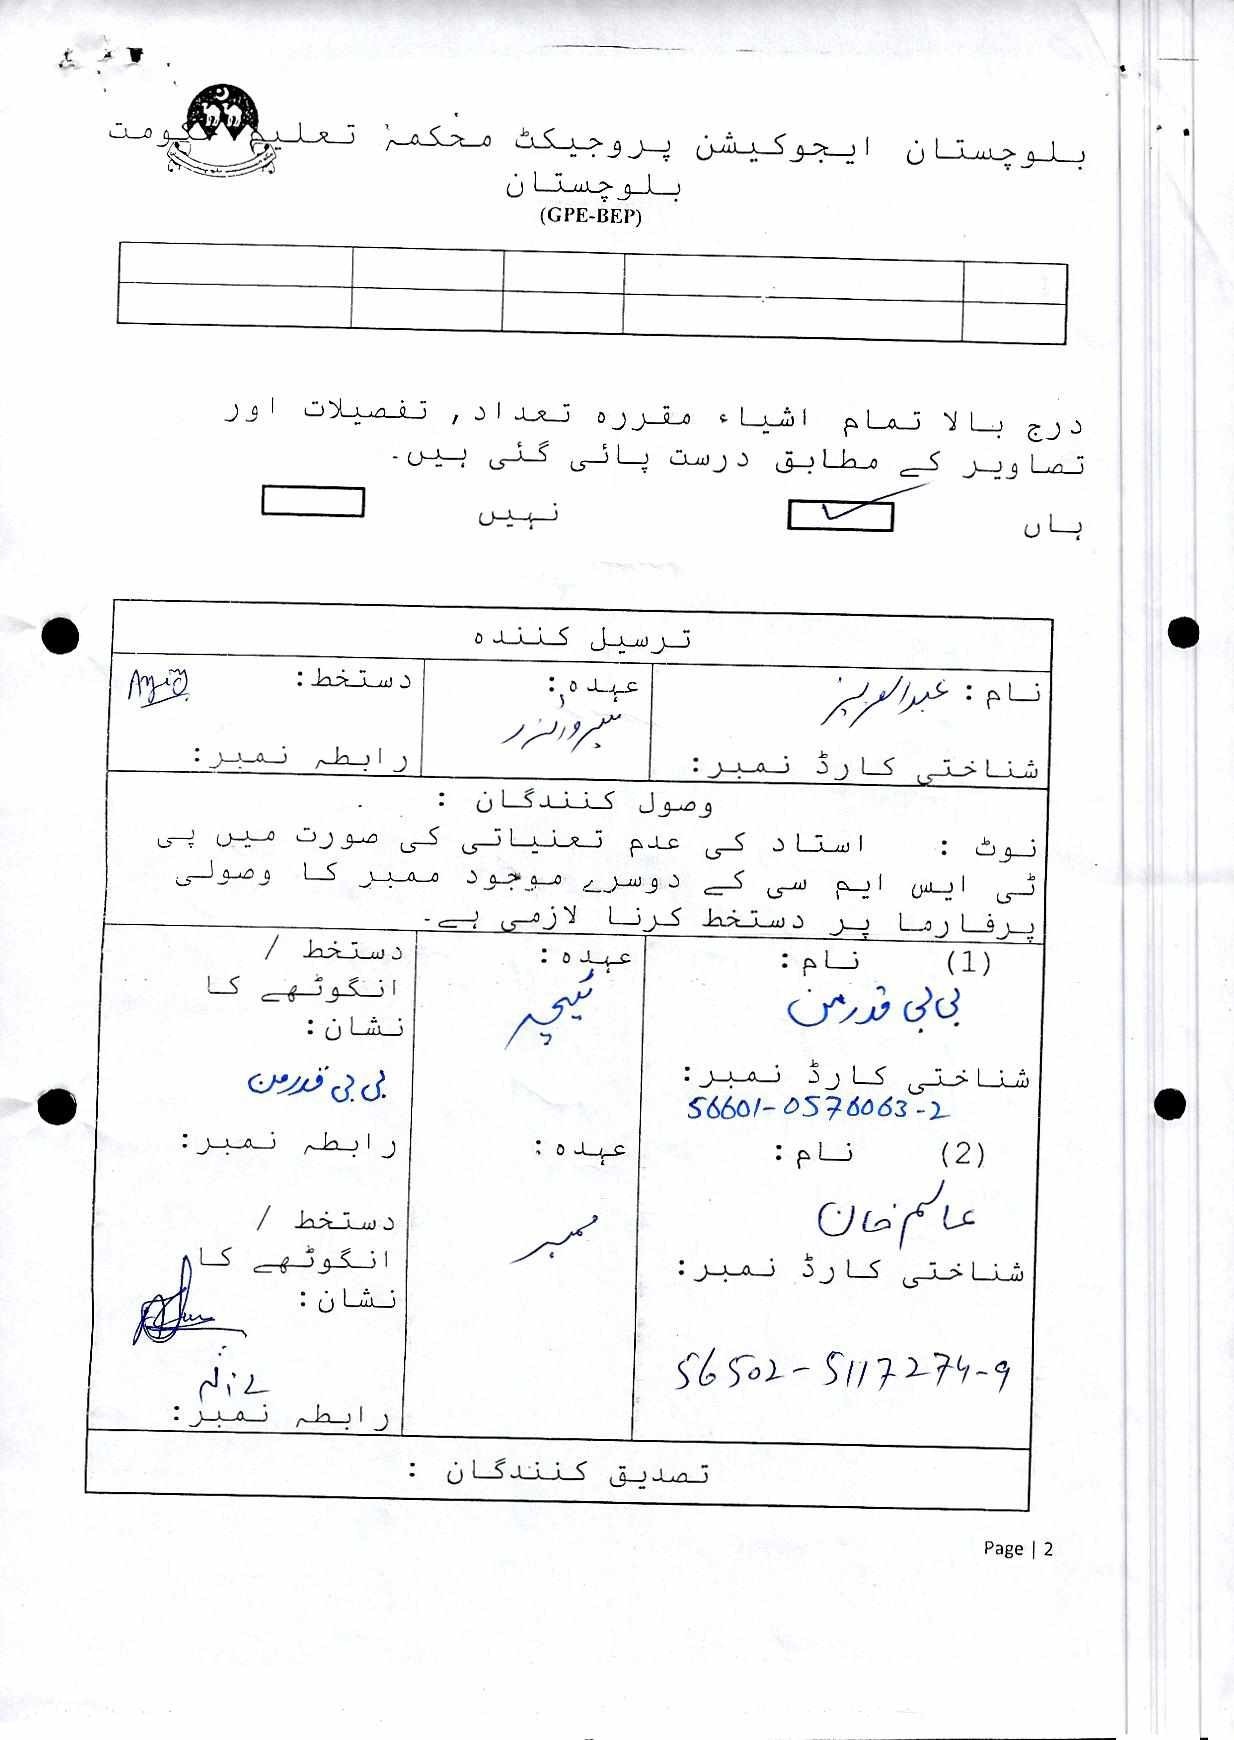 بلوچستان ایجوکیشن پروجیکٹ محکمۂ تعلیم حکومت
بلوچستان
(GPE-BEP)
درج بالا تمام اشیاء مقررہ تعداد, تفصیلات اور
تصاویر کے مطابق درست پائی گئی ہیں۔
ہاں نہیں
ترسیل کنندہ
نام : عبدالعزیز عہدہ : دستخط :
شناختی کارڈ نمبر : رابطہ نمبر :
وصول کنندگان :
نوٹ : استاد کی عدم تعنیاتی کی صورت میں پی
ٹی ایس ایم سی کے دوسرے موجود ممبر کا وصولی
پرفارما پر دستخط کرنا لازمی ہے۔
(1) نام : عہدہ : دستخط /
انگوٹھے کا
نشان :
بی بی
ٹیچر
شناختی کارڈ نمبر :
بی بی
56601-0576063-2
(2) نام : عہدہ : رابطہ نمبر :
خان
ممبر
دستخط /
انگوٹھے کا
نشان :
شناختی کارڈ نمبر :
56502-5117274-9
رابطہ نمبر :
تصدیق کنندگان :
Page | 2